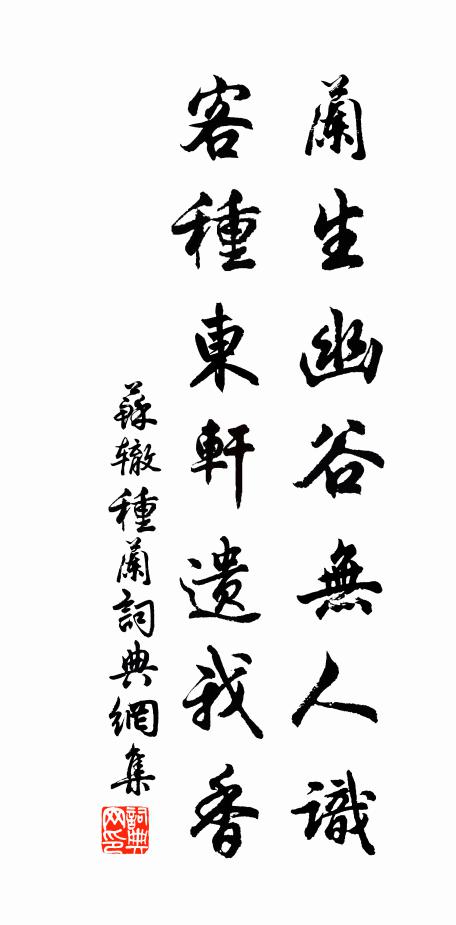 蘭生幽谷無人識
客種東軒遺我香
蘇轍種蘭詞典網集
詞典网印